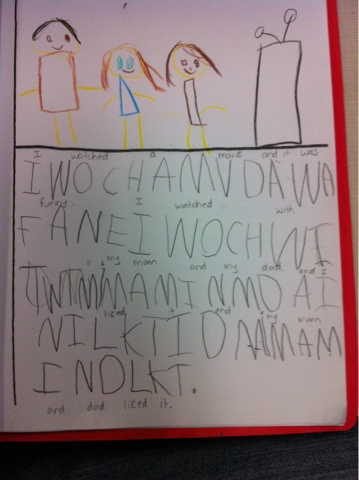 I watched a movie and it was
I WOCHAMVDAWA
funny. I watched with
FANEI WOCHWI
my mom and my dad and I
liced it and my mom
NILKTID
INDLKT.
and dad liced it.